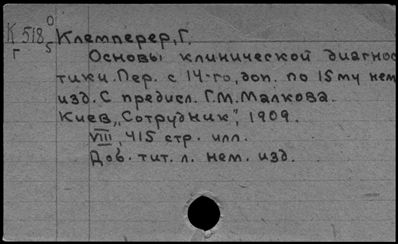 К 518 0/5 Клемперер, Г.
Г Основы клинической диагнос
тики. Пер. с 14-го, доп. по 15му нем
изд. С предисл. Г.М. Малкова.
Киев, „Сотрудник", 1909.
VIII, 415 стр. илл.
Доб. тит. л. нем. изд.